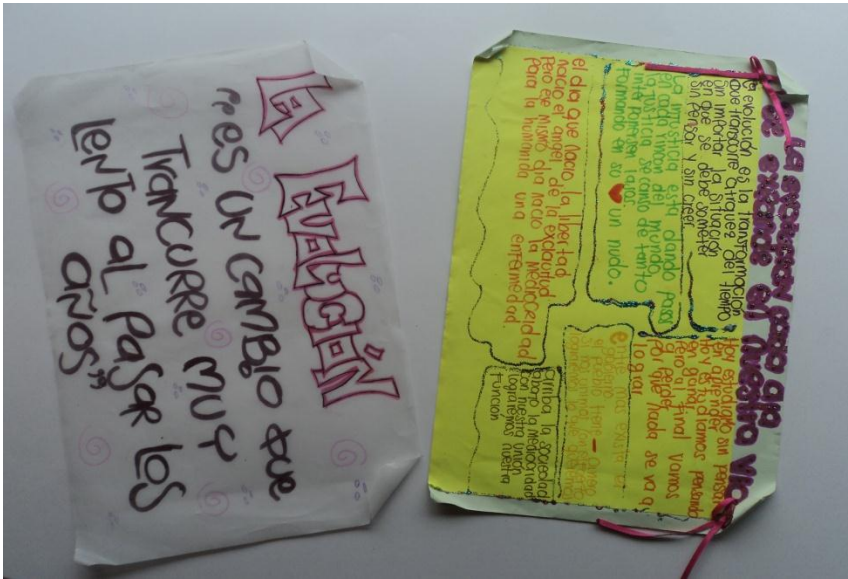 LA EVOLUCIÓN
"es UN CAMBIO QUE
TRANCURRE MUY
LENTO AL PASAR LOS
AÑOS"
LA evolucion paso a pa
se extiende en nuestra vid
la evolución es la transformación
que transcurre atraquez del tiempo
sin importar la situación
en que se debe someter
sin pensar y sin creer
la injusticia esta dando pasos
en cada rincon del mundo,
la justicia se canso de tanto
interponerse lazos.
formando en su un nudo.
el dia que nacio la libertad
nacio el angel de la exclavitud
pero ese mismo dia nacio la mediocridad
para la humanida una enfermedad.
Hoy estudiamos sin pensar
en aprender
Hoy estudiamos pensando
en ganar
pero al final vamos
a perder
por que nada se va a
lograr
arriba la sociedad
abajo la mediocridad
con nuestra union
lograremos nuestra
funcion